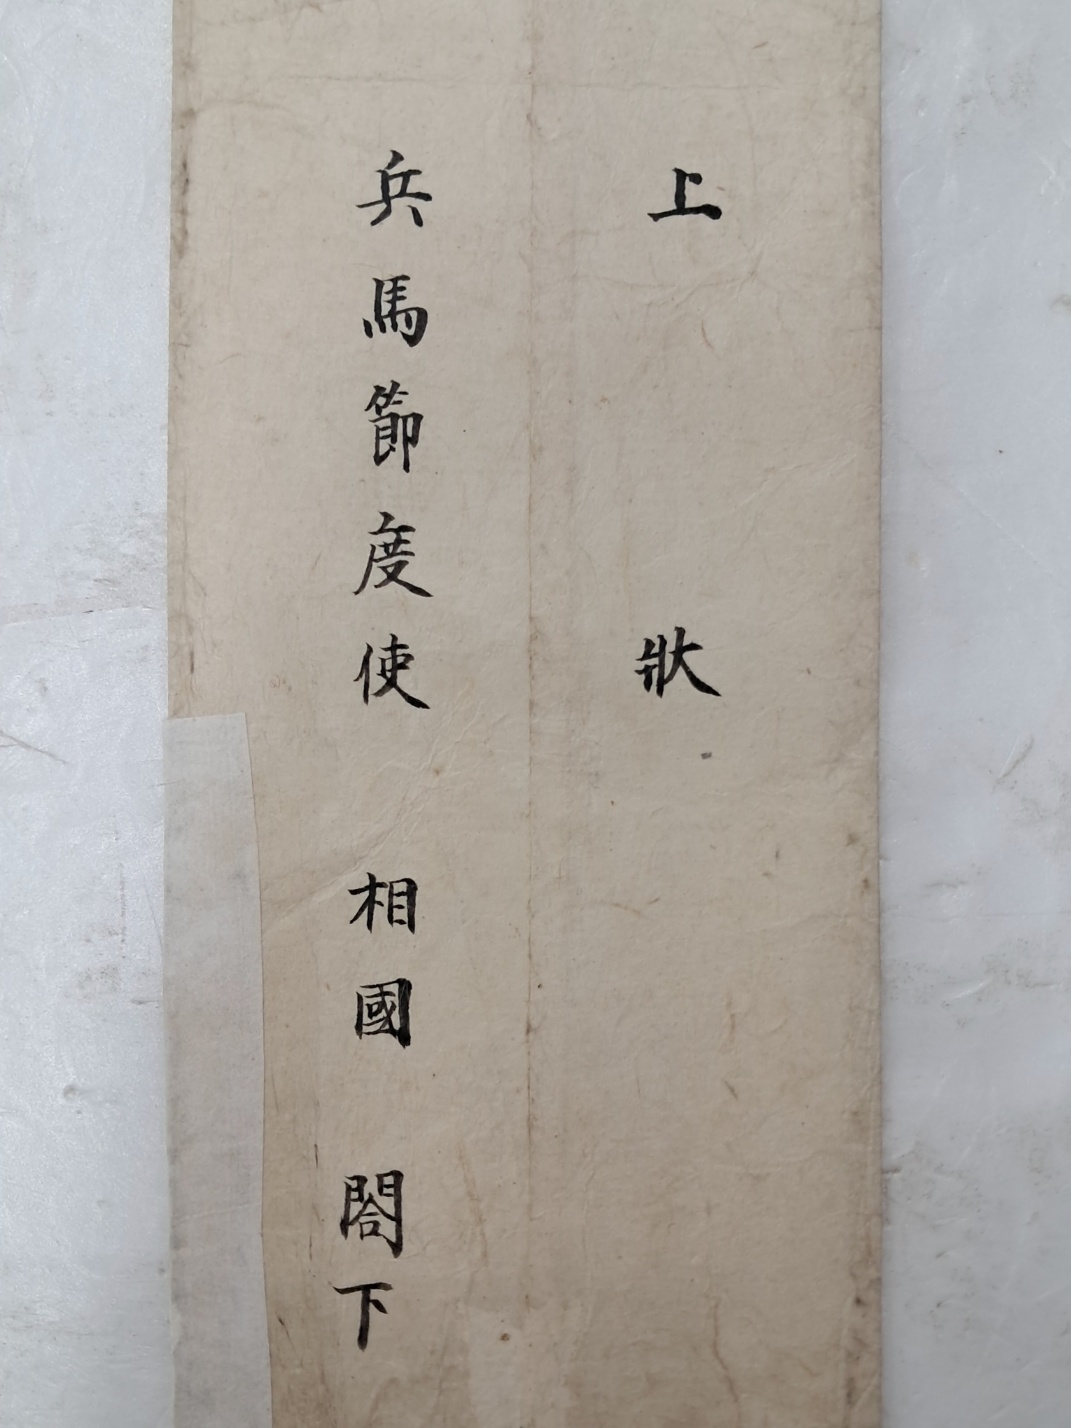 上狀
兵馬節度使 相國 閤下